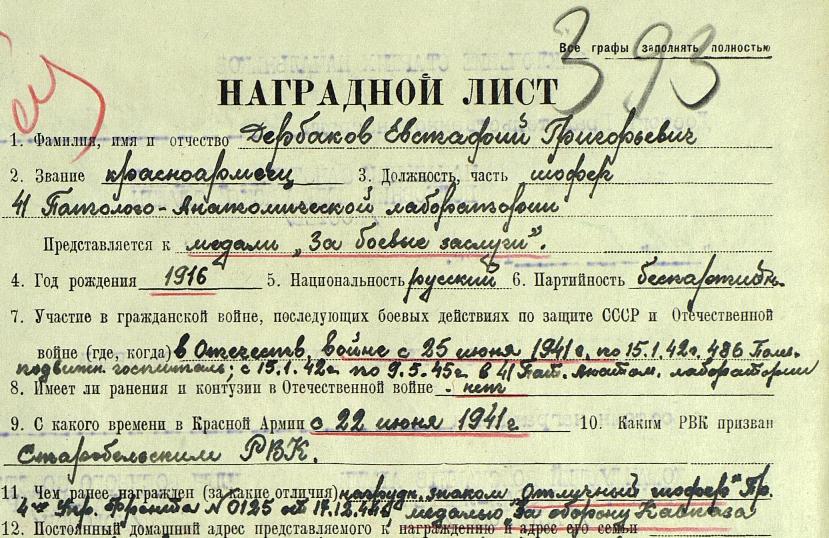 393
Все графы заполнять полностью
НАГРАДНОЙ ЛИСТ
1. Фамилия, имя и отчество Дербаков Евстафий Григорьевич
2. Звание красноармеец 3. Должность, часть шофер
41 Патолого-Анатомической лаборатории
Представляется к медали „За боевые заслуги".
4. Год рождения 1916 5. Национальность русский 6. Партийность беспартийн.
7. Участие в гражданской войне, последующих боевых действиях по защите СССР и Отечественной
войне (где, когда) в Отечеств. войне с 25 июня 1941г. по 15.1.42г. 486 Полев.
подвижн. госпиталь; с 15.1.42г. по 9.5.45г. в 41 Пат. Анатом. лаборатории
8. Имеет ли ранения и контузии в Отечественной войне - нет
9. С какого времени в Красной Армии с 22 июня 1941г 10. Каким РВК призван
Старобельским РВК.
11. Чем ранее награжден (за какие отличия) нагрудн. знаком „Отличный шофер" Пр.
4го Укр. фронта N 0125 от 17.12.44г, медалью „За оборону Кавказа
12. Постоянный домашний адрес представляемого к награждению и адрес его семьи